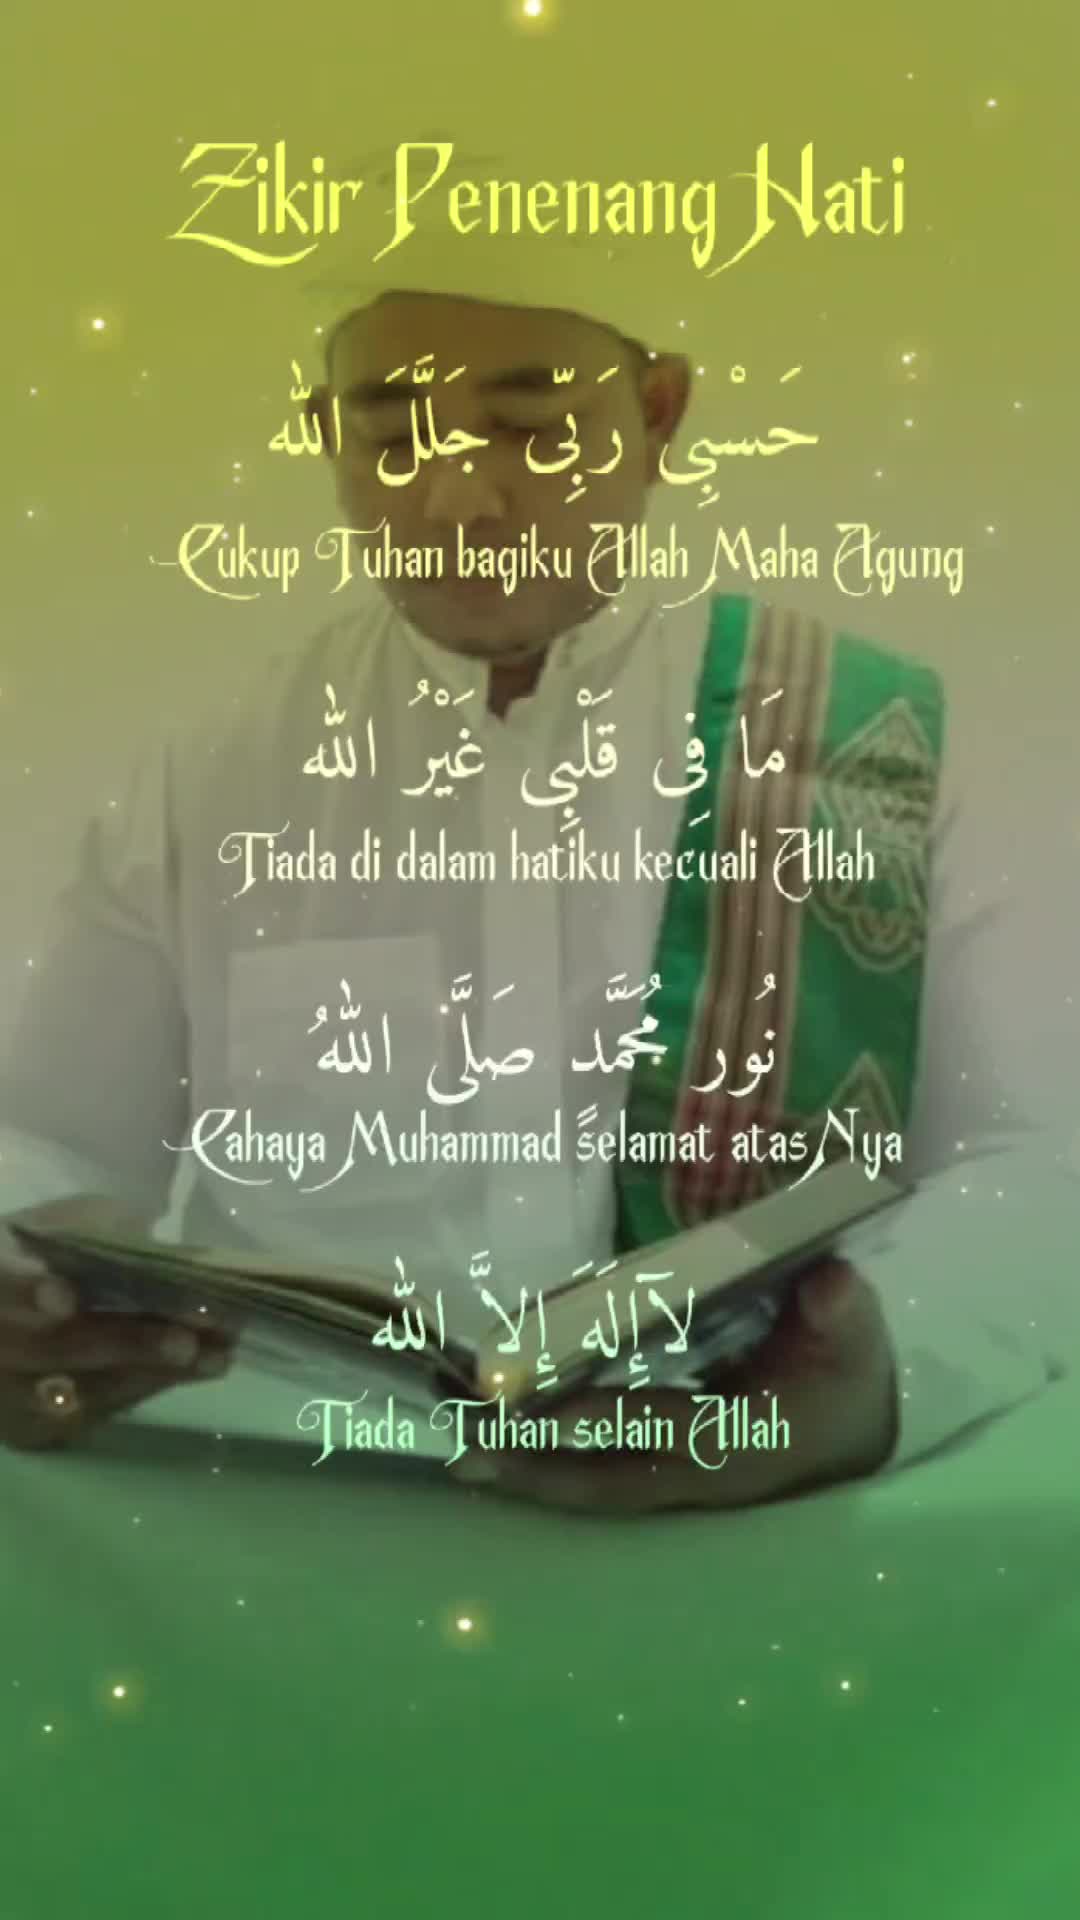 Zikir Penenang Hati
حَسْبِى رَبِّى جَلَّلَ الله
Cukup Tuhan bagiku Allah Maha Agung
مَا فِى قَلْبِى غَيْرُ الله
Tiada di dalam hatiku kecuali Allah
نُور مُحَمَّد صَلَّى اللهُ
Cahaya Muhammad selamat atasNya
لآإِلَهَ إِلاَّ الله
Tiada Tuhan selain Allah